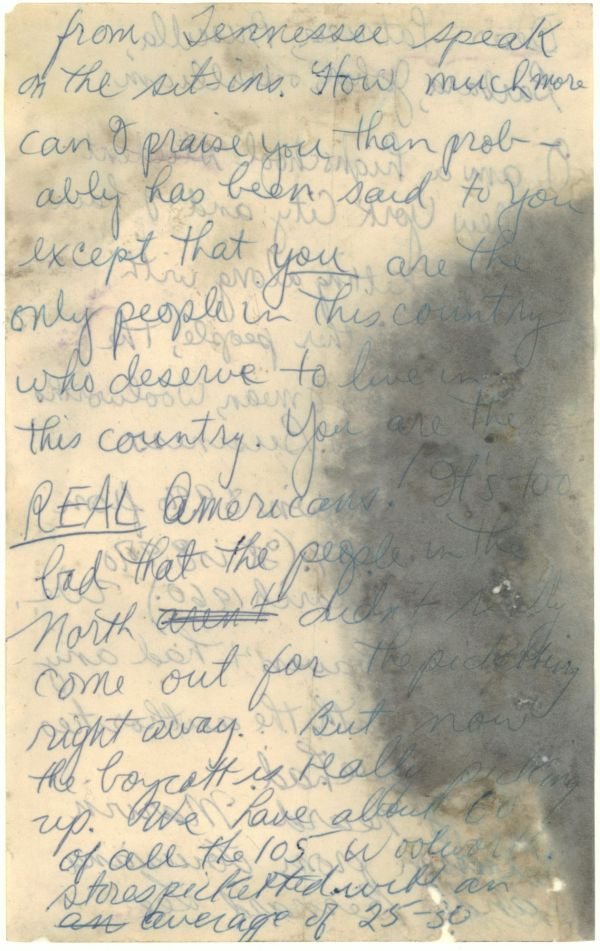 from Tennessee speak
on the sit-ins. How much more
can I praise you than prob-
ably has been said to you
except that you are the
only people in this country
who deserve to live in
this country. You are the
REAL Americans! It's too
bad that the people in the
North aren't didn't really
come out for the picketting
right away. But now
the boycott is really picking
up. We have about 60
of all the 105 Woolworth
stores picketted with an
an average of 25-30